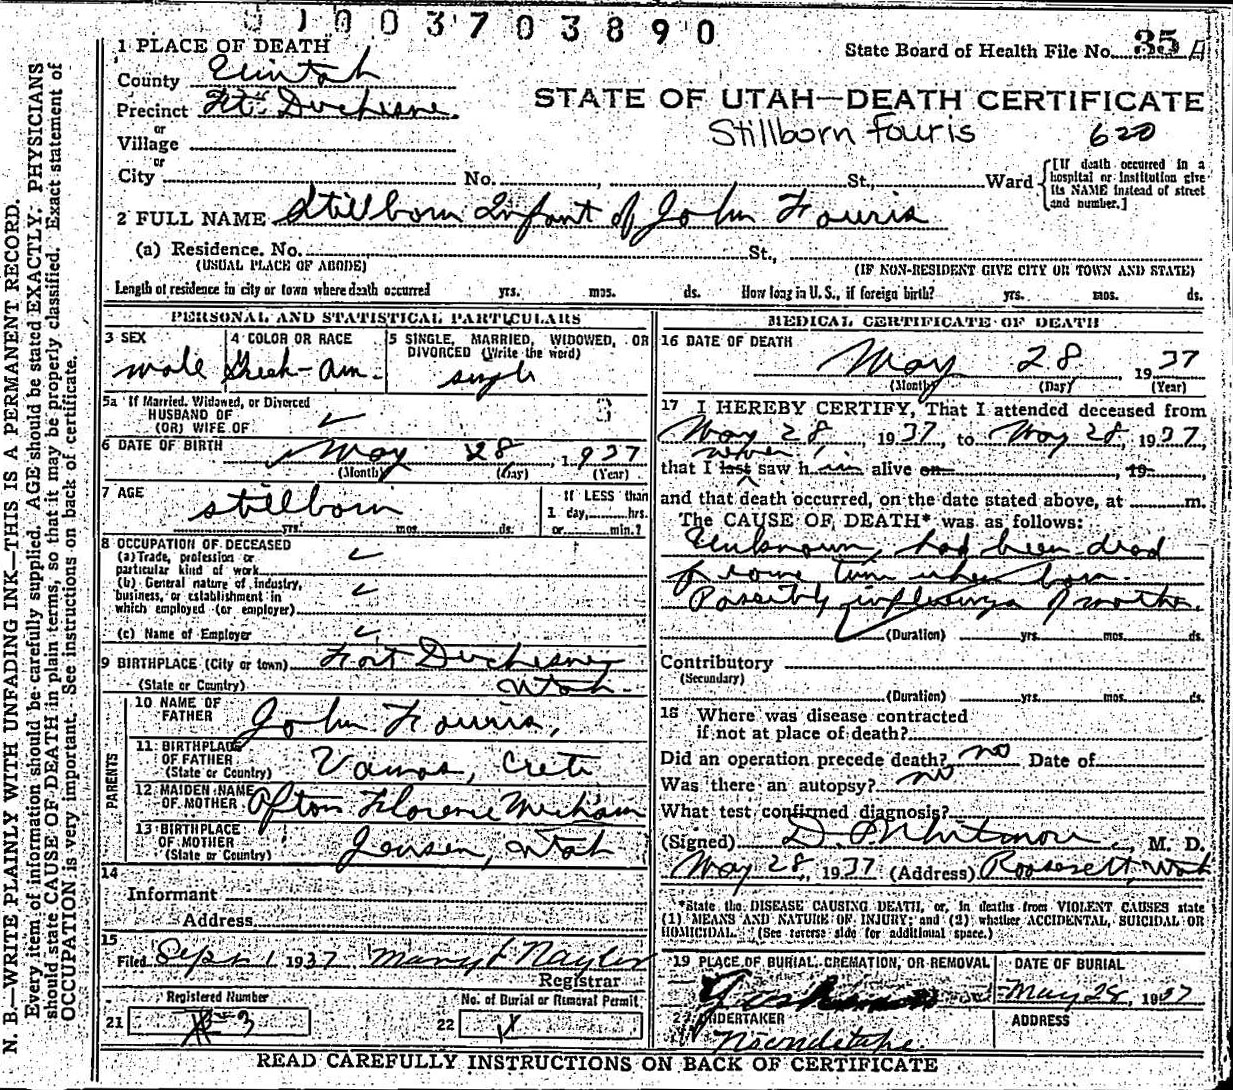 01003703890
State Board of Health File No. 35 A
1 PLACE OF DEATH
County Uintah
Precinct Ft. Duchesne.
or
Village
or
City No. , St., Ward
[If death occurred in a hospital or institution give its NAME instead of street and number.]
STATE OF UTAH—DEATH CERTIFICATE
Stillborn Fouris 620
2 FULL NAME Stillborn Infant of John Fouris
(a) Residence. No. St.,
(USUAL PLACE OF ABODE) (IF NON-RESIDENT GIVE CITY OR TOWN AND STATE)
Length of residence in city or town where death occurred yrs. mos. ds. How long in U. S., if foreign birth? yrs. mos. ds.
PERSONAL AND STATISTICAL PARTICULARS
3 SEX
male
4 COLOR OR RACE
Greek-Am-
5 SINGLE, MARRIED, WIDOWED, OR DIVORCED (Write the word)
single
5a If Married, Widowed, or Divorced
HUSBAND OF
(OR) WIFE OF
6 DATE OF BIRTH May 28, 1937
(Month) (Day) (Year)
7 AGE
stillborn
yrs. mos. ds.
If LESS than
1 day, hrs.
or min.?
8 OCCUPATION OF DECEASED
(a) Trade, profession or
particular kind of work
(b) General nature of industry,
business, or establishment in
which employed (or employer)
(c) Name of Employer
9 BIRTHPLACE (City or town) Fort Duchesne
(State or Country) Utah.
PARENTS
10 NAME OF
FATHER John Fouris,
11 BIRTHPLACE
OF FATHER
(State or Country) Vamos, Crete
12 MAIDEN NAME
OF MOTHER Afton Florence
13 BIRTHPLACE
OF MOTHER
(State or Country) Jensen, Utah
14
Informant
Address
15
Filed Sept 1 1937 Mary Nayler
Registrar
Registered Number
21 3
No. of Burial or Removal Permit
22
MEDICAL CERTIFICATE OF DEATH
16 DATE OF DEATH
May 28 1937
(Month) (Day) (Year)
17 I HEREBY CERTIFY, That I attended deceased from
May 28, 1937, to May 28, 1937,
never
that I last saw him alive on , 19-
and that death occurred, on the date stated above, at m.
The CAUSE OF DEATH* was as follows:
Unknown, had been dead
for some time when born.
Possibly influenza of mother.
(Duration) yrs. mos. ds.
Contributory
(Secondary)
(Duration) yrs. mos. ds.
18 Where was disease contracted
if not at place of death?
Did an operation precede death? no Date of
Was there an autopsy? no
What test confirmed diagnosis?
(Signed) Whitmore, M. D.
May 28, 1937 (Address) Roosevelt, Utah
*State the DISEASE CAUSING DEATH, or, in deaths from VIOLENT CAUSES state
(1) MEANS AND NATURE OF INJURY; and (2) whether ACCIDENTAL, SUICIDAL OR
HOMICIDAL. (See reverse side for additional space.)
19 PLACE OF BURIAL, CREMATION, OR REMOVAL
DATE OF BURIAL
May 28, 1937
UNDERTAKER
ADDRESS
READ CAREFULLY INSTRUCTIONS ON BACK OF CERTIFICATE
N. B.—WRITE PLAINLY WITH UNFADING INK—THIS IS A PERMANENT RECORD.
Every item of information should be carefully supplied. AGE should be stated EXACTLY. PHYSICIANS
should state CAUSE OF DEATH in plain terms, so that it may be properly classified. Exact statement of
OCCUPATION is very important. See instructions on back of certificate.